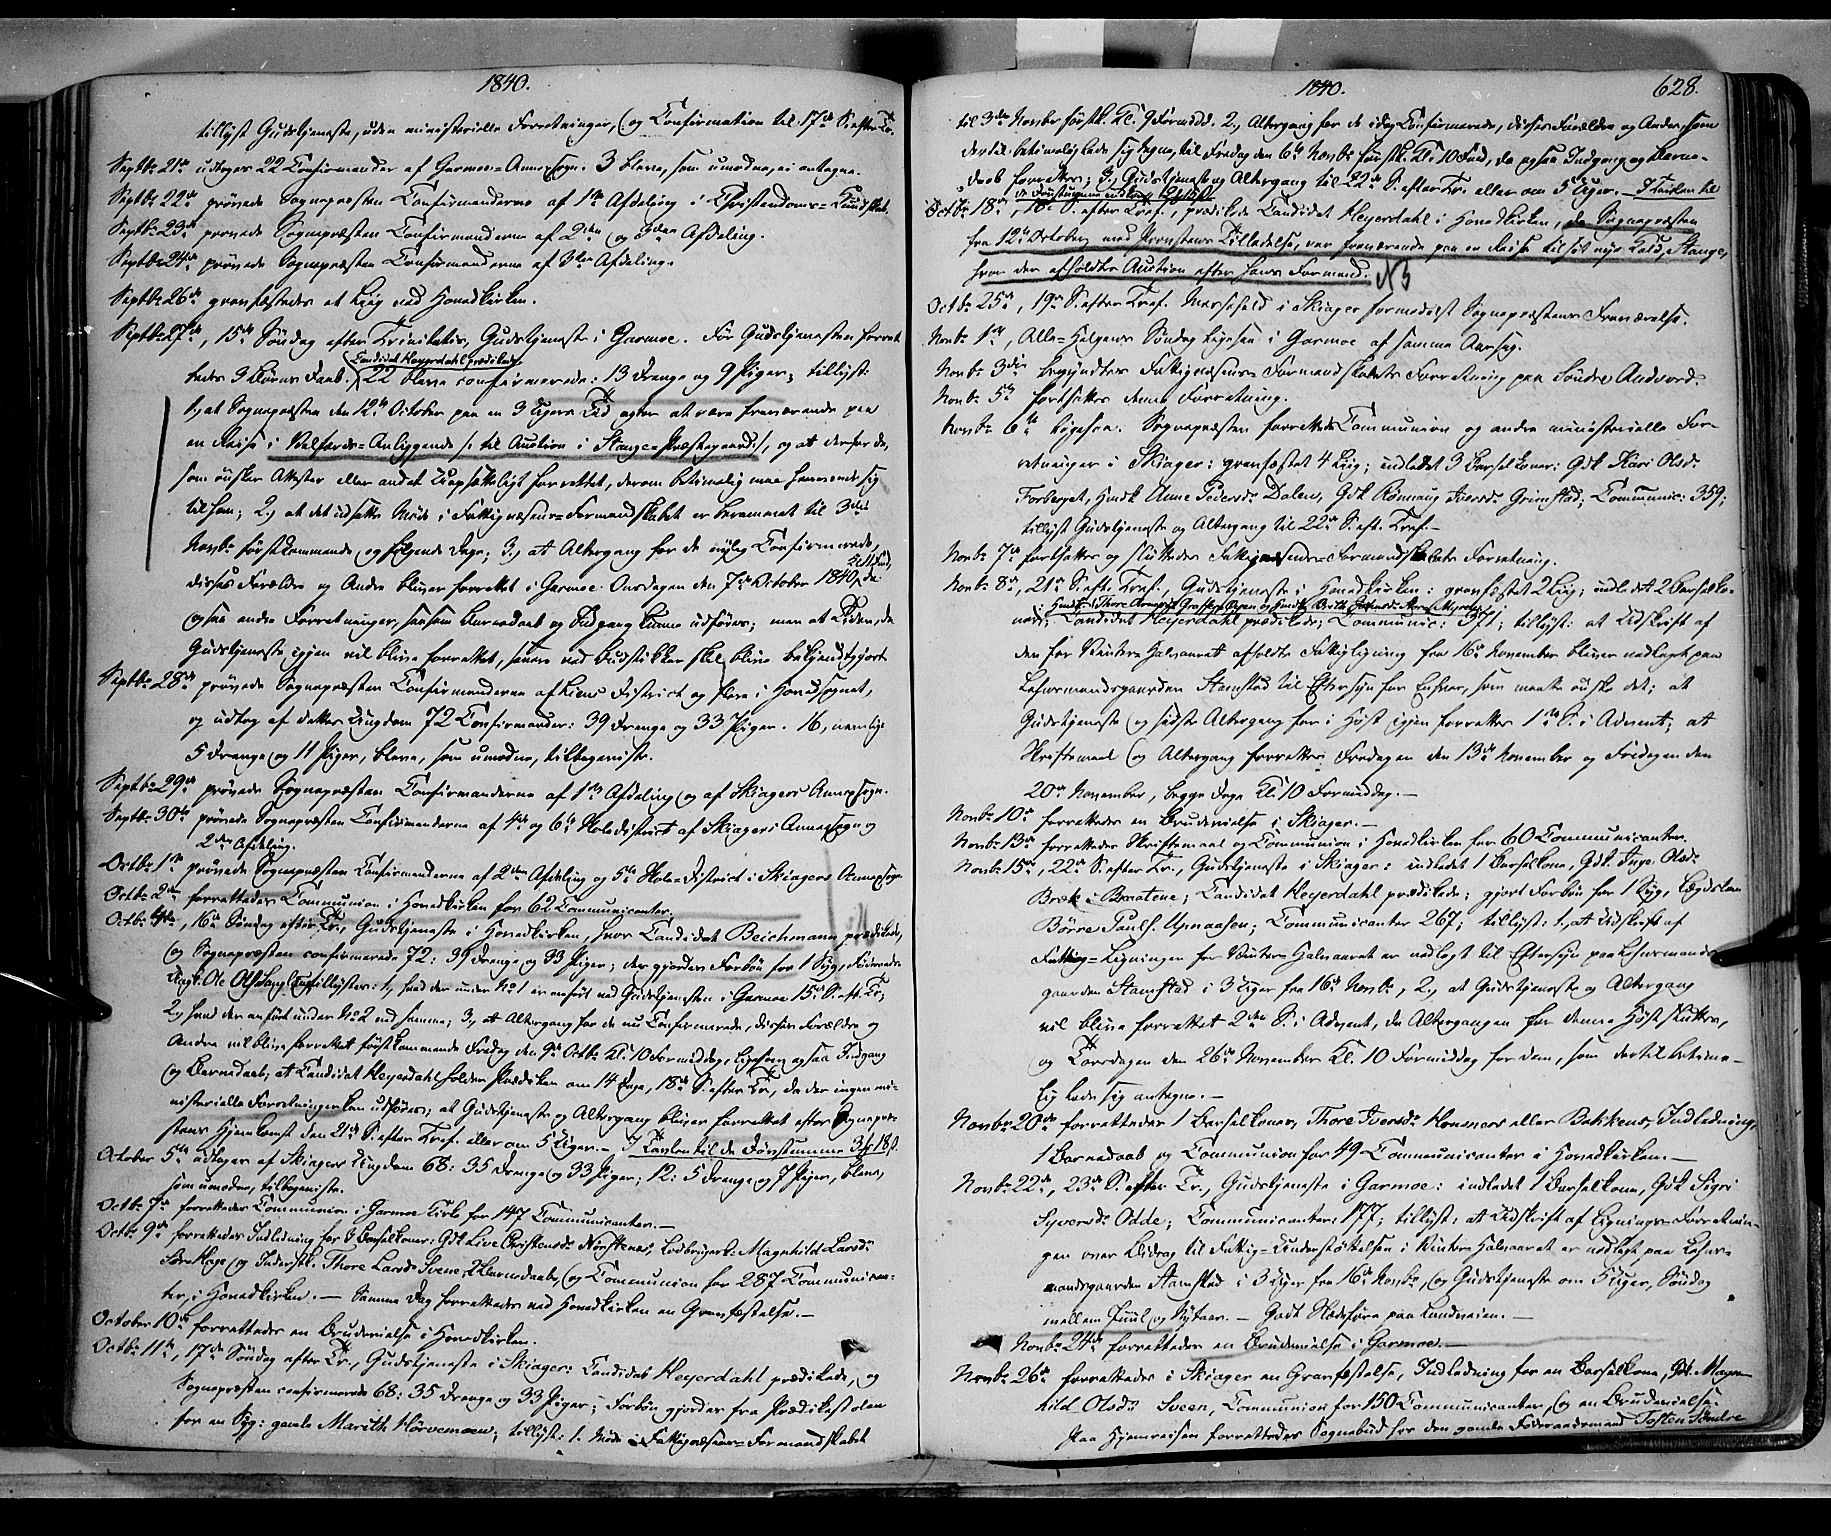 1840.
tillyst Gudstjeneste, uden ministerielle Forretninger, og Confirmation til 17de S. efter Tr.
Septbr 21de udtoges 22 Confirmander af Garmoe=Annexsogn. 3 bleve, som umodne, ei antagne.
Septbr 22de prøvede Sognepræsten Confirmanderne af 1ste Afdeling i Christendoms=Kundskab.
Septbr 23de prøvede Sognepræsten Confirmanderne af 2den og 3die Afdeling.
Septbr 24de prøvede Sognepræsten Confirmanderne af 3die Afdeling.
Septbr 26de gravfæstedes et Liig ved Hovedkirken.
Septbr 27de, 15de Søndag efter Trinitatis, Gudstjeneste i Garmoe. Før Gudstjenesten forret-
Candidat Heyerdahl prædikede
tedes 3 Børns Daab. 22 bleve confirmerede: 13 Drenge og 9 Piger; tillyst:
1, at Sognepræsten den 12te October paa en 3 Ugers Tid agter at være fraværende paa
en Reise i Velfærds=Anliggende /: til Auction i Stange=Præstegaard :/, og at derfor de,
som ønsker Attester eller andet Uopsætteligt forrettet, derom betimelig maa henvende sig
til ham; 2, at det udsatte Møde i Fattigvæsens=Formandskabet er berammet til 3die
Novbr førstkommende og følgende Dage; 3, at Altergang for de nylig Confirmerede,
disses Forældre og Andre bliver forrettet i Garmoe Onsdagen den 7de October 1840, da
ogsaa andre Forretninger, saasom Barnedaab og Indgang kunne udføres; men at Tiden, da
Gudstjeneste igjen vil blive forrettet, senere ved Budstikker skal blive bekjendtgjort
Septbr 28de prøvede Sognepræsten Confirmanderne af Liens District og flere i Hovedsognet,
og udtog af dettes Ungdom 72 Confirmander: 39 Drenge og 33 Piger. 16, nemlig:
5 Drenge og 11 Piger, bleve, som umodne, tilbageviste.
Septbr 29de prøvede Sognepræsten Confirmanderne af 1ste Afdeling og af Skiagers Annexsogn.
Septbr 30te prøvede Sognepræsten Confirmanderne af 4de og 6te Skoledistrict af Skiagers Annexsogn og
2den Afdeling.
Octbr 1ste prøvede Sognepræsten Confirmanderne af 2den Afdeling og 5te Skole=District i Skiagers Annexsogn
Octbr 2den forrettedes Communion i Hovedkirken for 62 Communicanter.
Octbr 4de, 16de Søndag efter Tr., Gudstjeneste i Hovedkirken, hvor Candidat Beichmann prædikede,
og Sognepræsten confirmerede 72: 39 Drenge og 33 Piger; der gjordes Forbøn for 1 Syg,
Ole Olss. tillystes: 1, hvad der under No 1 er anført ved Gudstjenesten i Garmoe 15de S. eft. Tr;
2, hvad der anført under No 2 ved samme; 3, at Altergang for de nu Confirmerede, disses Forældre og
Andre vil blive forrettet førstkommende Fredag den 9de Octbr Kl. 10 Formiddag, ligesom ogsaa Indgang
og Barnedaab; at Candidat Heyerdahl holder Prædiken om 14 Dage, 18de S. efter Tr., da der ingen mi-
nisterielle Forretninger kan udføres; at Gudstjeneste og Altergang bliver forrettet efter Sognepræ-
stens Hjemkomst den 21de S. efter Tref. eller om 5 Uger. – I Tavlen til de Døvstumme 34 ß 18 s.
October 5te udtoges af Skiagers Ungdom 68: 35 Drenge og 33 Piger; 12: 5 Drenge og 7 Piger, bleve,
som umodne, tilbageviste.
Octbr 7de forrettedes Communion i Garmoe Kirke for 147 Communicanter. –
Octbr 9de forrettedes Indledning for 3 Barselkoner: Gdk. Live Christensdr Nørstenes, Ledbrugersk. Magnhild Larsdr
og Inderstk. Thore Larsdr Sveene, 2 Barnedaab, og Communion for 287 Communican-
ter, i Hovedkirken. – Samme Dag forrettedes ved Hovedkirken en Gravfæstelse. –
October 10de forrettedes en Brudevielse i Hovedkirken.
Octbr 11te, 17de Søndag efter Tr., Gudstjeneste i Skiager: Candidat Heyerdahl prædikede, og
Sognepræsten confirmerede 68: 35 Drenge og 33 Piger; Forbøn gjordes fra Prædikestolen
for en Syg: gamle Marith Hørvemoen; tillyst: 1. Møde i Fattigvæsens=Formandskabet
1840.
628.
til 3die Novbr førstk. Kl. 9 Formidd. 2, Altergang for de idag Confirmerede, disses Forældre og Andre, som
dertil betimelig lade sig tegne, til Fredag den 6te Novbr førstk. Kl. 10 Fmd, da ogsaa Indgang og Barne-
daab forrettes; 3, Gudstjeneste og Altergang til 22de S. efter Tr. eller om 5 Uger. – I Tavlen til
de Døvstumme indkom
Octbr 18de, 18de S. efter Tref., prædikede Candidat Heyerdahl i Hovedkirken, da Sognepræsten
fra 12te October, med Provstens Tilladelse, var fraværende paa en Reise til sit nye Kald, Stange,
hvor der afholdtes Auction efter hans Formand. NB
Octbr 25de, 19de S. efter Tref. Messefald i Skiager formedelst Sognepræstens Fraværelse.
Novbr 1ste, Alle=Helgens Søndag ligesaa i Garmoe af samme Aarsag.
Novbr 3die begyndtes Fattigvæsens=Formandskabets Forretning paa Søndre Andvord.
Novbr 5te fortsattes denne Forretning.
Novbr 6te ligesaa. Sognepræsten forrettede Communion og andre ministerielle For-
retninger i Skiager: gravfæstet 4 Liig; indledet 3 Barselkoner: Gdk. Kari Olsdr
Forberget, Husk. Anne Pedersdr Dalen, Gdk. Rønnaug Iversdr Grimstad; Communic: 359;
tillyst Gudstjeneste og Altergang til 22de S. eft. Tref. –
Novbr 7de fortsattes og sluttedes Fattigvæsens=Formandskabets Forretning.
Novbr 8de, 21de S. eft. Tref., Gudstjeneste i Hovedkirken: gravfæstet 2 Liig; indledet 2 Barselko-
ner; Candidat Heyerdahl prædikede; Communic: 371; tillyst: at Udskrift af
den for Vinter=Halvaaret afholdte Fattigligning fra 16de November bliver nedlagt paa
Lehnsmandsgaarden Stamstad til Eftersyn for Enhver, som maatte ønske det; at
Gudstjeneste og sidste Altergang for i Høst igjen forrettes 1ste S. i Advent; at
Skriftemaal og Altergang forrettes Fredagen den 13de November og Fredagen den
20de November, begge Dage Kl. 10 Formiddag. –
Novbr 10de forrettedes en Brudevielse i Skiager. –
Novbr 13de forrettedes Skriftemaal og Communion i Hovedkirken for 60 Communicanter.
Novbr 15de, 22de S. efter Tr., Gudstjeneste i Skiager: indledet 1 Barselkone, Gdk. Inge Olsdr
Bræk i Bratene; Candidat Heyerdahl prædikede; gjort Forbøn for 1 Syg, Lægdslem
Børre Pauls. Upnaasen; Communicanter 267; tillyst: 1, at Udskrift af
Fattig=Ligningen for Vinter=Halvaaret er nedlagt til Eftersyn paa Lehnsmands=
gaarden Stamstad i 3 Uger fra 16de Novbr, 2, at Gudstjeneste og Altergang
vil blive forrettet 2den S. i Advent, da Altergangen for denne Høst sluttes,
og Torsdagen den 26de November Kl. 10 Formiddag for dem, som dertil betime-
lig lade sig antegne. –
Novbr 20de forrettedes 1 Barselkones, Thore Iversdr Homnæs eller Bakkens, Indledning,
1 Barnedaab og Communion for 49 Communicanter i Hovedkirken. –
Novbr 22de, 23de S. efter Tr., Gudstjeneste i Garmoe: indledet 1 Barselkone, Gdk. Sigri
Syversdr Odde; Communicanter: 177; tillyst: at Udskrift af Lignings=Forretnin-
gen over Bidrag til Fattig=Understøttelsen i Vinter=Halvaaret er nedlagt paa Lehns-
mandsgaarden Stamstad i 3 Uger fra 16de Novbr, og Gudstjeneste om 5 Uger, Søndag
mellem Juul og Nytaar. – Godt Slædeføre paa Landveien. –
Novbr 24de forrettedes en Brudevielse i Garmoe. –
Novbr 26de forrettedes i Skiager en Gravfæstelse, Indledning for en Barselkone, Gdk. Magn-
hild Olsdr Sveen, Communion for 150 Communicanter, og en Brudevielse.
Paa Hjemreisen forrettedes Sognebud for den gamle Føderaadsmand Tosten Søndre